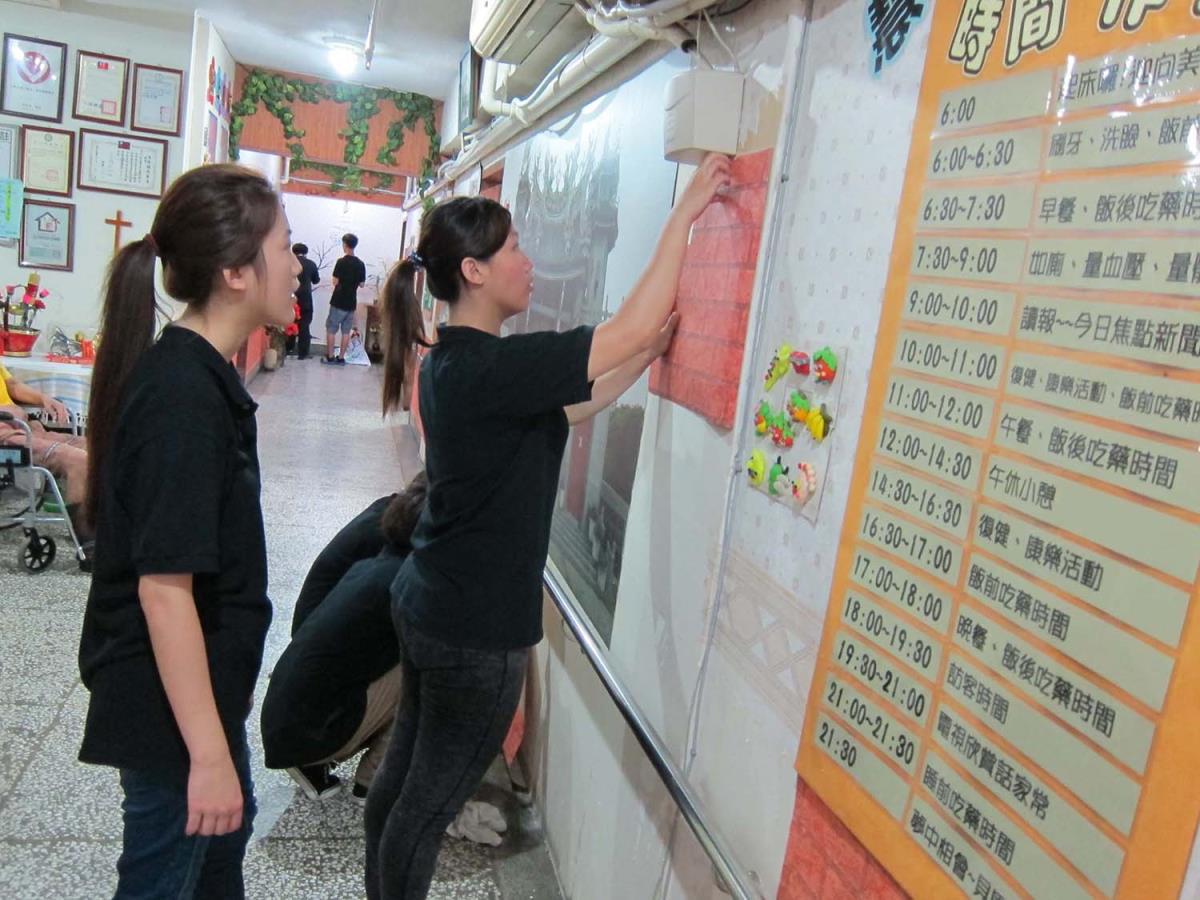 時間 作
6:00 起床囉!迎向美
6:00~6:30 刷牙、洗臉、飯前
6:30~7:30 早餐、飯後吃藥時
7:30~9:00 如廁、量血壓、量
9:00~10:00 讀報~~今日焦點新聞
10:00~11:00 復健、康樂活動、飯前吃藥
11:00~12:00 午餐、飯後吃藥時間
12:00~14:30 午休小憩
14:30~16:30 復健、康樂活動
16:30~17:00 飯前吃藥時間
17:00~18:00 晚餐、飯後吃藥時間
18:00~19:30 訪客時間
19:30~21:00 電視欣賞話家常
21:00~21:30 睡前吃藥時間
21:30 夢中相會~